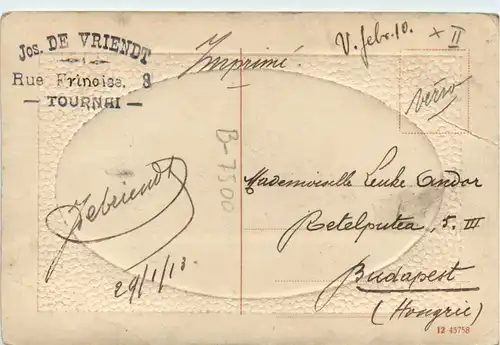 Jos. DE VRIENDT
Rue Frinoise. 8
— TOURNAI —
Imprimé.
V. febr. 10. + II
verso
B-7500
JdeVriendt
29/1/13
Mademoiselle Lenke Andor
Retelputea, 5. III
Budapest
(Hongrie)
12 43758